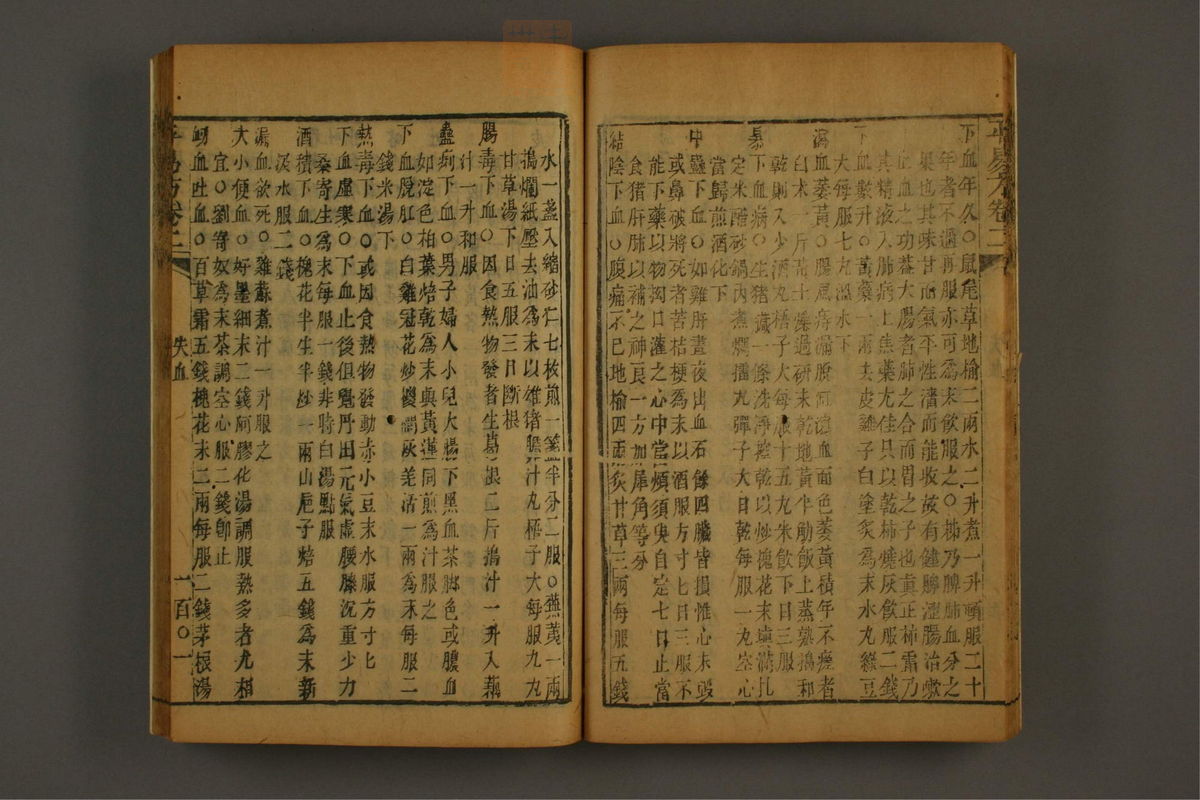 下血年久〇鼠尾草地榆二兩水二升煮一升頓服二十
年者不過再服亦可為末飲服之〇柿乃脾肺血分之
果也其味甘而氣平性濇而能收故有健脾澀腸治嗽
止血之功蓋大腸者肺之合而胃之子也真正柿霜乃
其精液入肺病上焦藥尤佳具以乾柿燒灰飲服二錢
下血數升〇黃藥一兩去皮雞子白塗炙為末水丸綠豆
大每服七丸溫水下
瀉血萎黃〇腸風痔漏脫肛瀉血面色萎黃積年不瘥者
白朮一斤黃土炒過研末乾地黃半觔飯上蒸熟搗和
乾則入少酒丸梧子大每服十五丸米飲下日三服
暴下血病〇生猪臟一條洗淨控乾以炒槐花末填滿扎
定米醋砂鍋內煮爛擂丸彈子大日乾每服一丸空心
當歸煎酒化下
中蠱下血〇如雞肝晝夜出血石餘四臟皆損惟心未毀
或鼻破將死者苦桔梗為末以酒服方寸匕日三服不
能下藥以物拘口灌之心中當煩須臾自定七日止當
食猪肝肺以補之神良一方加犀角等分
結陰下血〇腹痛不已地榆四兩炙甘草三兩每服五錢
水一盞入縮砂仁七枚煎一盞半分二服〇蕪荑一兩
搗爛紙壓去油為末以雄猪膽汁丸梧子大每服九丸
甘草湯下日五服三日斷根
腸毒下血〇因食熱物發者生葛根二斤搗汁一升入藕
汁一升和服
蠱痢下血〇男子婦人小兒大腸下黑血茶脚色或膿血
如淀色柏葉焙乾為末與黃連同煎為汁服之
下血脫肛〇白雞冠花炒燰髑灰羌活一兩為末每服二
錢米湯下
熱毒下血〇或因食熱物發動赤小豆末水服方寸匕
下血虛寒〇下血止後但覺丹田元氣虛腰膝沉重少力
桑寄生為末每服一錢非時白湯點服
酒積下血〇槐花半生半炒一兩山梔子焙五錢為末新
汲水服二錢
漏血欲死〇雞蘇煮汁一升服之
大小便血〇好墨細末二錢阿膠化湯調服熱多者尤相
宜〇劉寄奴為末茶調空心服二錢即止
衂血吐血〇百草霜五錢槐花末二兩每服二錢茅根湯
失血
一百〇一